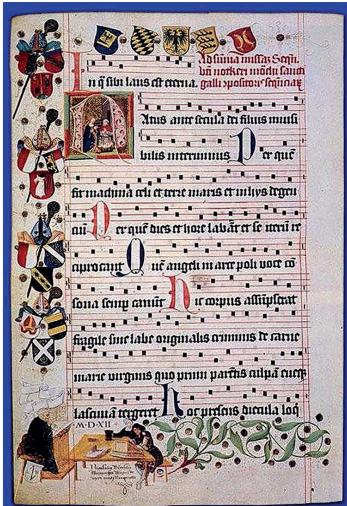 Ad sūmā missaꝝ Sequ.
notkeri mōchi sancti
galli
In q̄ sibi laus est eterna.
Natus ante secula dei filius inuisi
bilis interminus Per quē
fit machina celi et terre maris et in hijs degen
ciū Per quē dies et hore labāt et se iterū re
ciprocāt Quē angeli in arce poli voce cō
sona semp canūt Hic corpus assūpserat
fragile sine labe originalis criminis de carne
marie virginis quo primi parētis culpā eueq̄
lasciuia tergeret Hoc presens diecula loq̄
M·D·XII